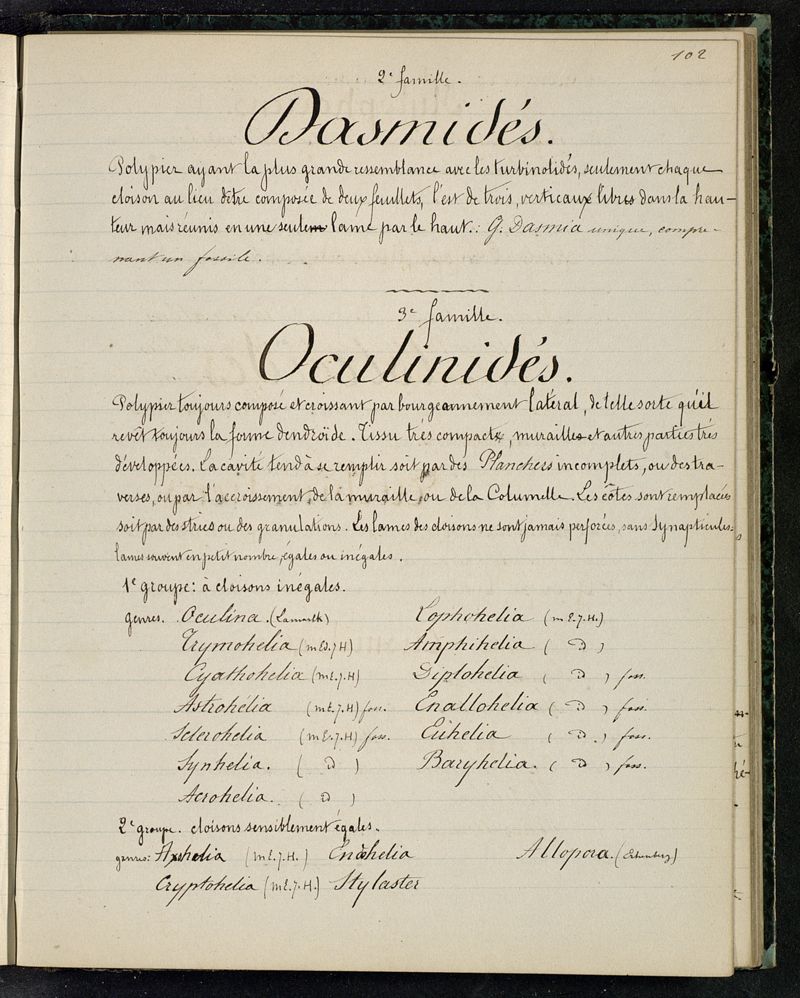 102
2e famille.
Dasmidés.
Polypier ayant la plus grande ressemblance avec les turbinolidés, seulement chaque
cloison au lieu d'être composée de deux feuillets, l'est de trois, verticaux libres dans la hau-
teur mais réunis en une seule lame par le haut.: G. Dasmia unique, compre-
nant un fossile.
3e famille.
Oculinidés.
Polypier toujours composé et croissant par bourgeannement latéral, de telle sorte qu'il
revêt toujours la forme dendroïde. Tissu très compacte, murailles et autres parties très
développées. La cavité tend à se remplir soit par des Planchers incomplets, ou des tra-
verses, ou par l'accroissement de la muraille, ou de la Columelle. Les côtes sont remplacées
soit par des stries ou des granulations. Les lames des cloisons ne sont jamais perforées, sans Synapticules.
lames souvent en petit nombre, égales ou inégales.
1e groupe: à cloisons inégales.
genres. Oculina. (Lamarck) Lophohelia (m E. J. H.)
Trymohelia (m Ed. J H) Amphihelia ( D )
Cyathohelia (m E. J. H) Diplohelia ( D ) foss.
Astrohélia (m E. J H) foss. Enallohelia ( D ) foss.
Sclerohelia (m E. J H) foss. Euhelia ( D. ) foss.
Synhelia. ( D ) Baryhelia. ( D ) foss.
Acrohelia. ( D )
2e groupe. cloisons sensiblement égales.
genres: Axhelia (m E. J. H.) Enahelia Allopora. (Ehrenberg)
Cryptohelia (m E. J. H.) Stylaster